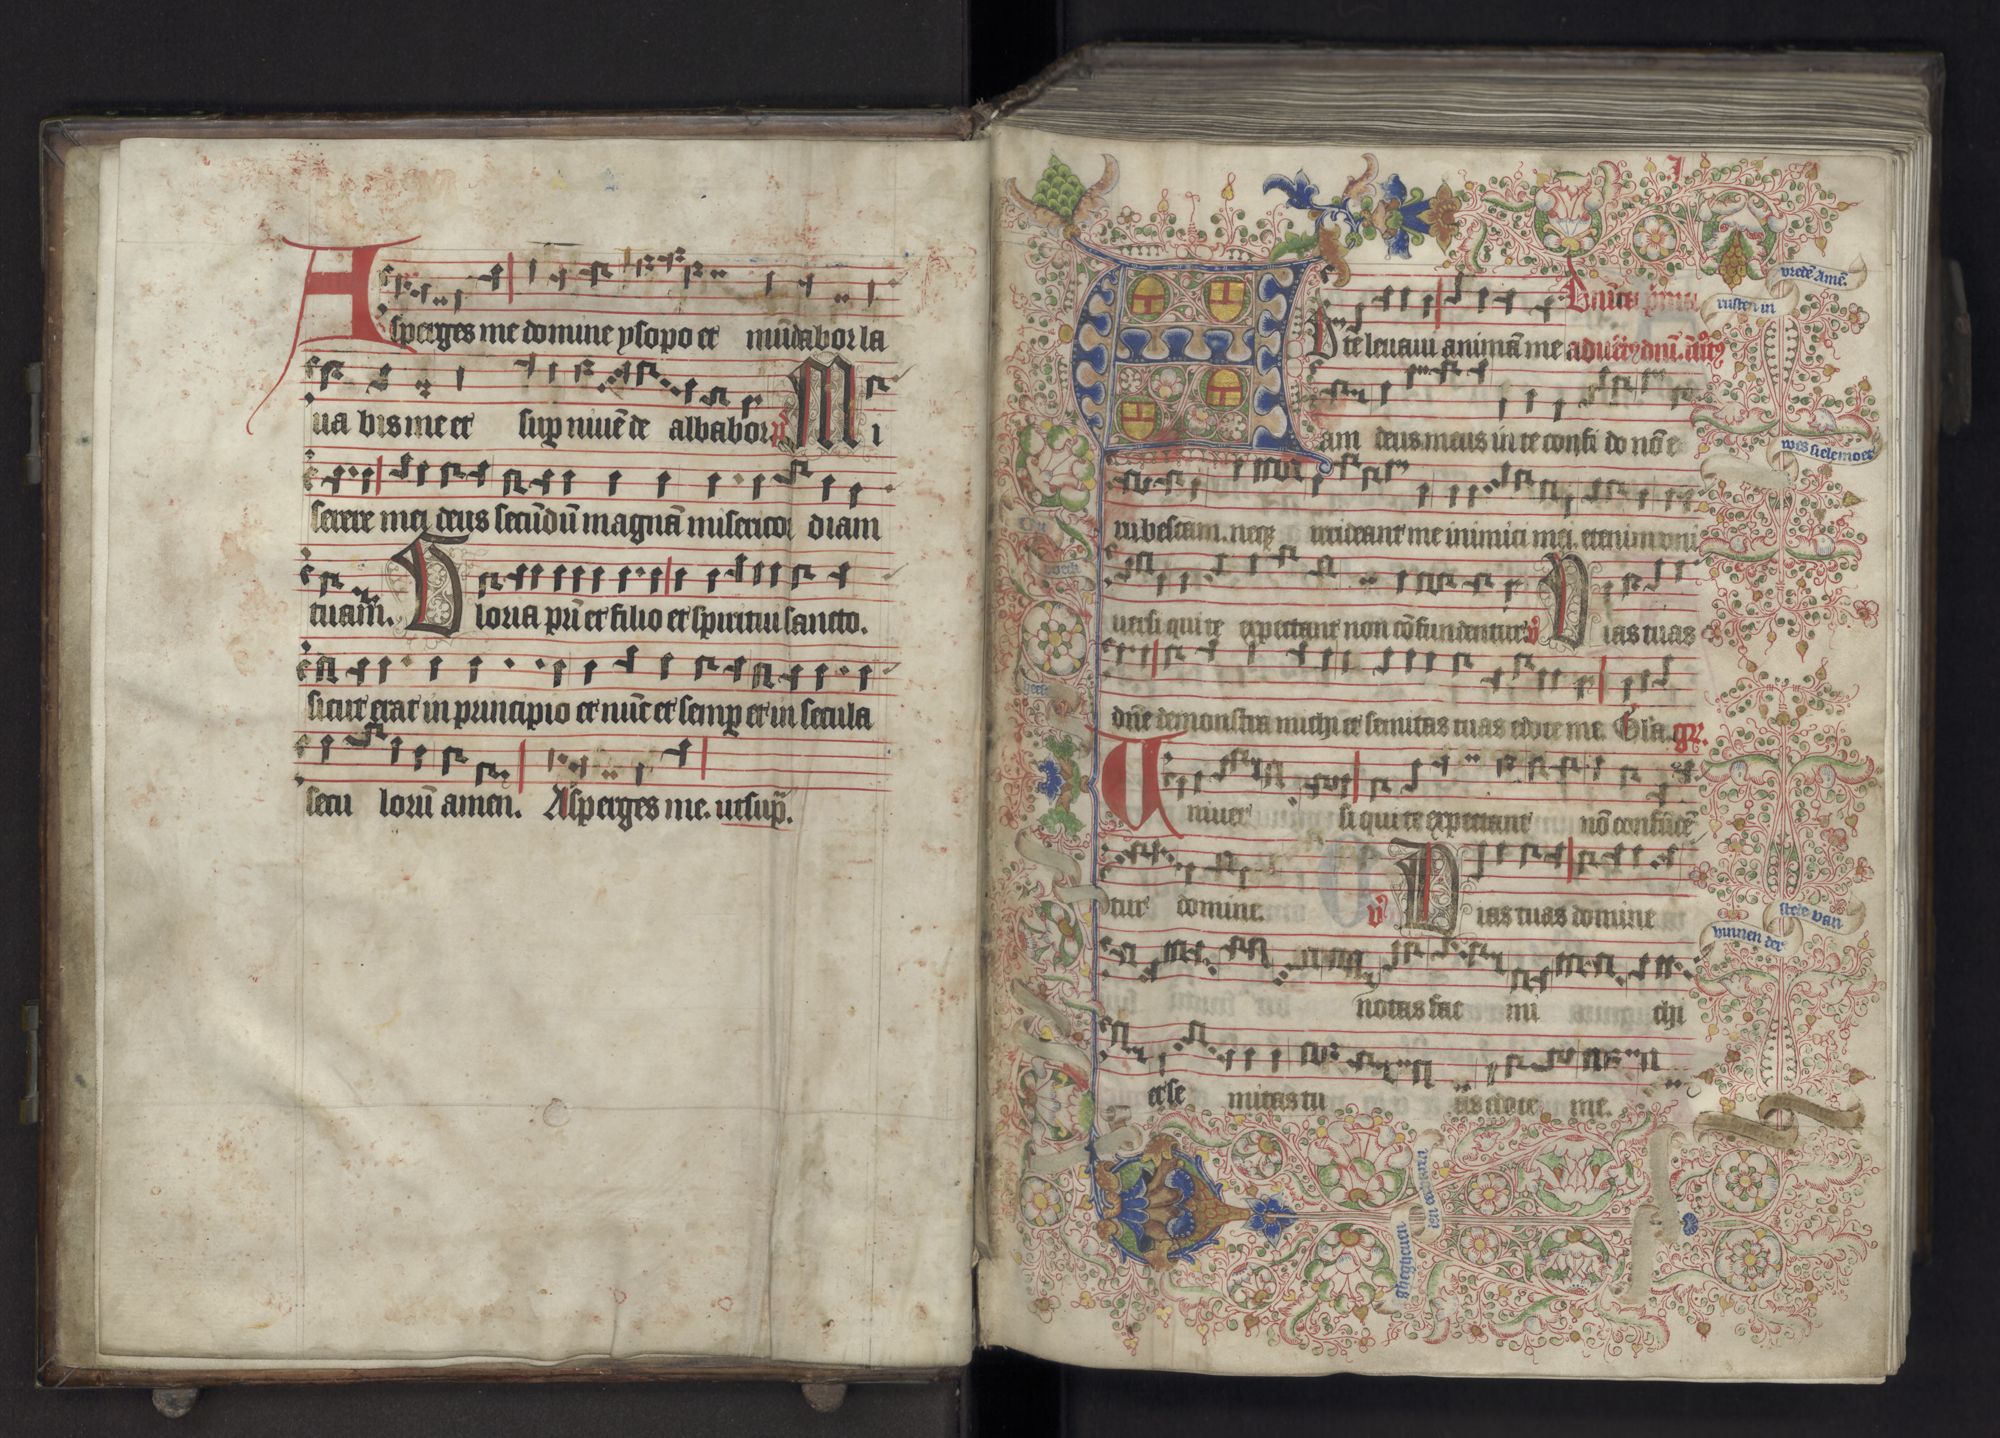 Asperges me domine ysopo et mūdabor la
ua bis me et sup niuē de albabor. p̄s Mi
serere mei deus secūdū magnā misericor diam
tuam. Gloria pri et filio et spiritui sancto.
sicut erat in principio et nūc et semp et in secula
secu lorū amen. Asperges me. ut sup̄.
I
Dnīca p̄ma
Ad te leuaui animā me aduētꝰ dnī.
am deus meus in te confi do nō e
rubescam. neqꝫ irrideant me inimici mei. etenim vni
uersi qui te expectant non cōfundentur. v̄ Vias tuas
dn̄e demonstra michi et semitas tuas edoce me. Gl'a. gr̄.
Uniuer si qui te expectant nō confūdē
tur domine. v̄ Vias tuas domine
notas fac mi chi
et se mitas tu as edoce me.
vrede Amē.
rusten in
wes siele moet
stede van
binnen der
ghegheuen